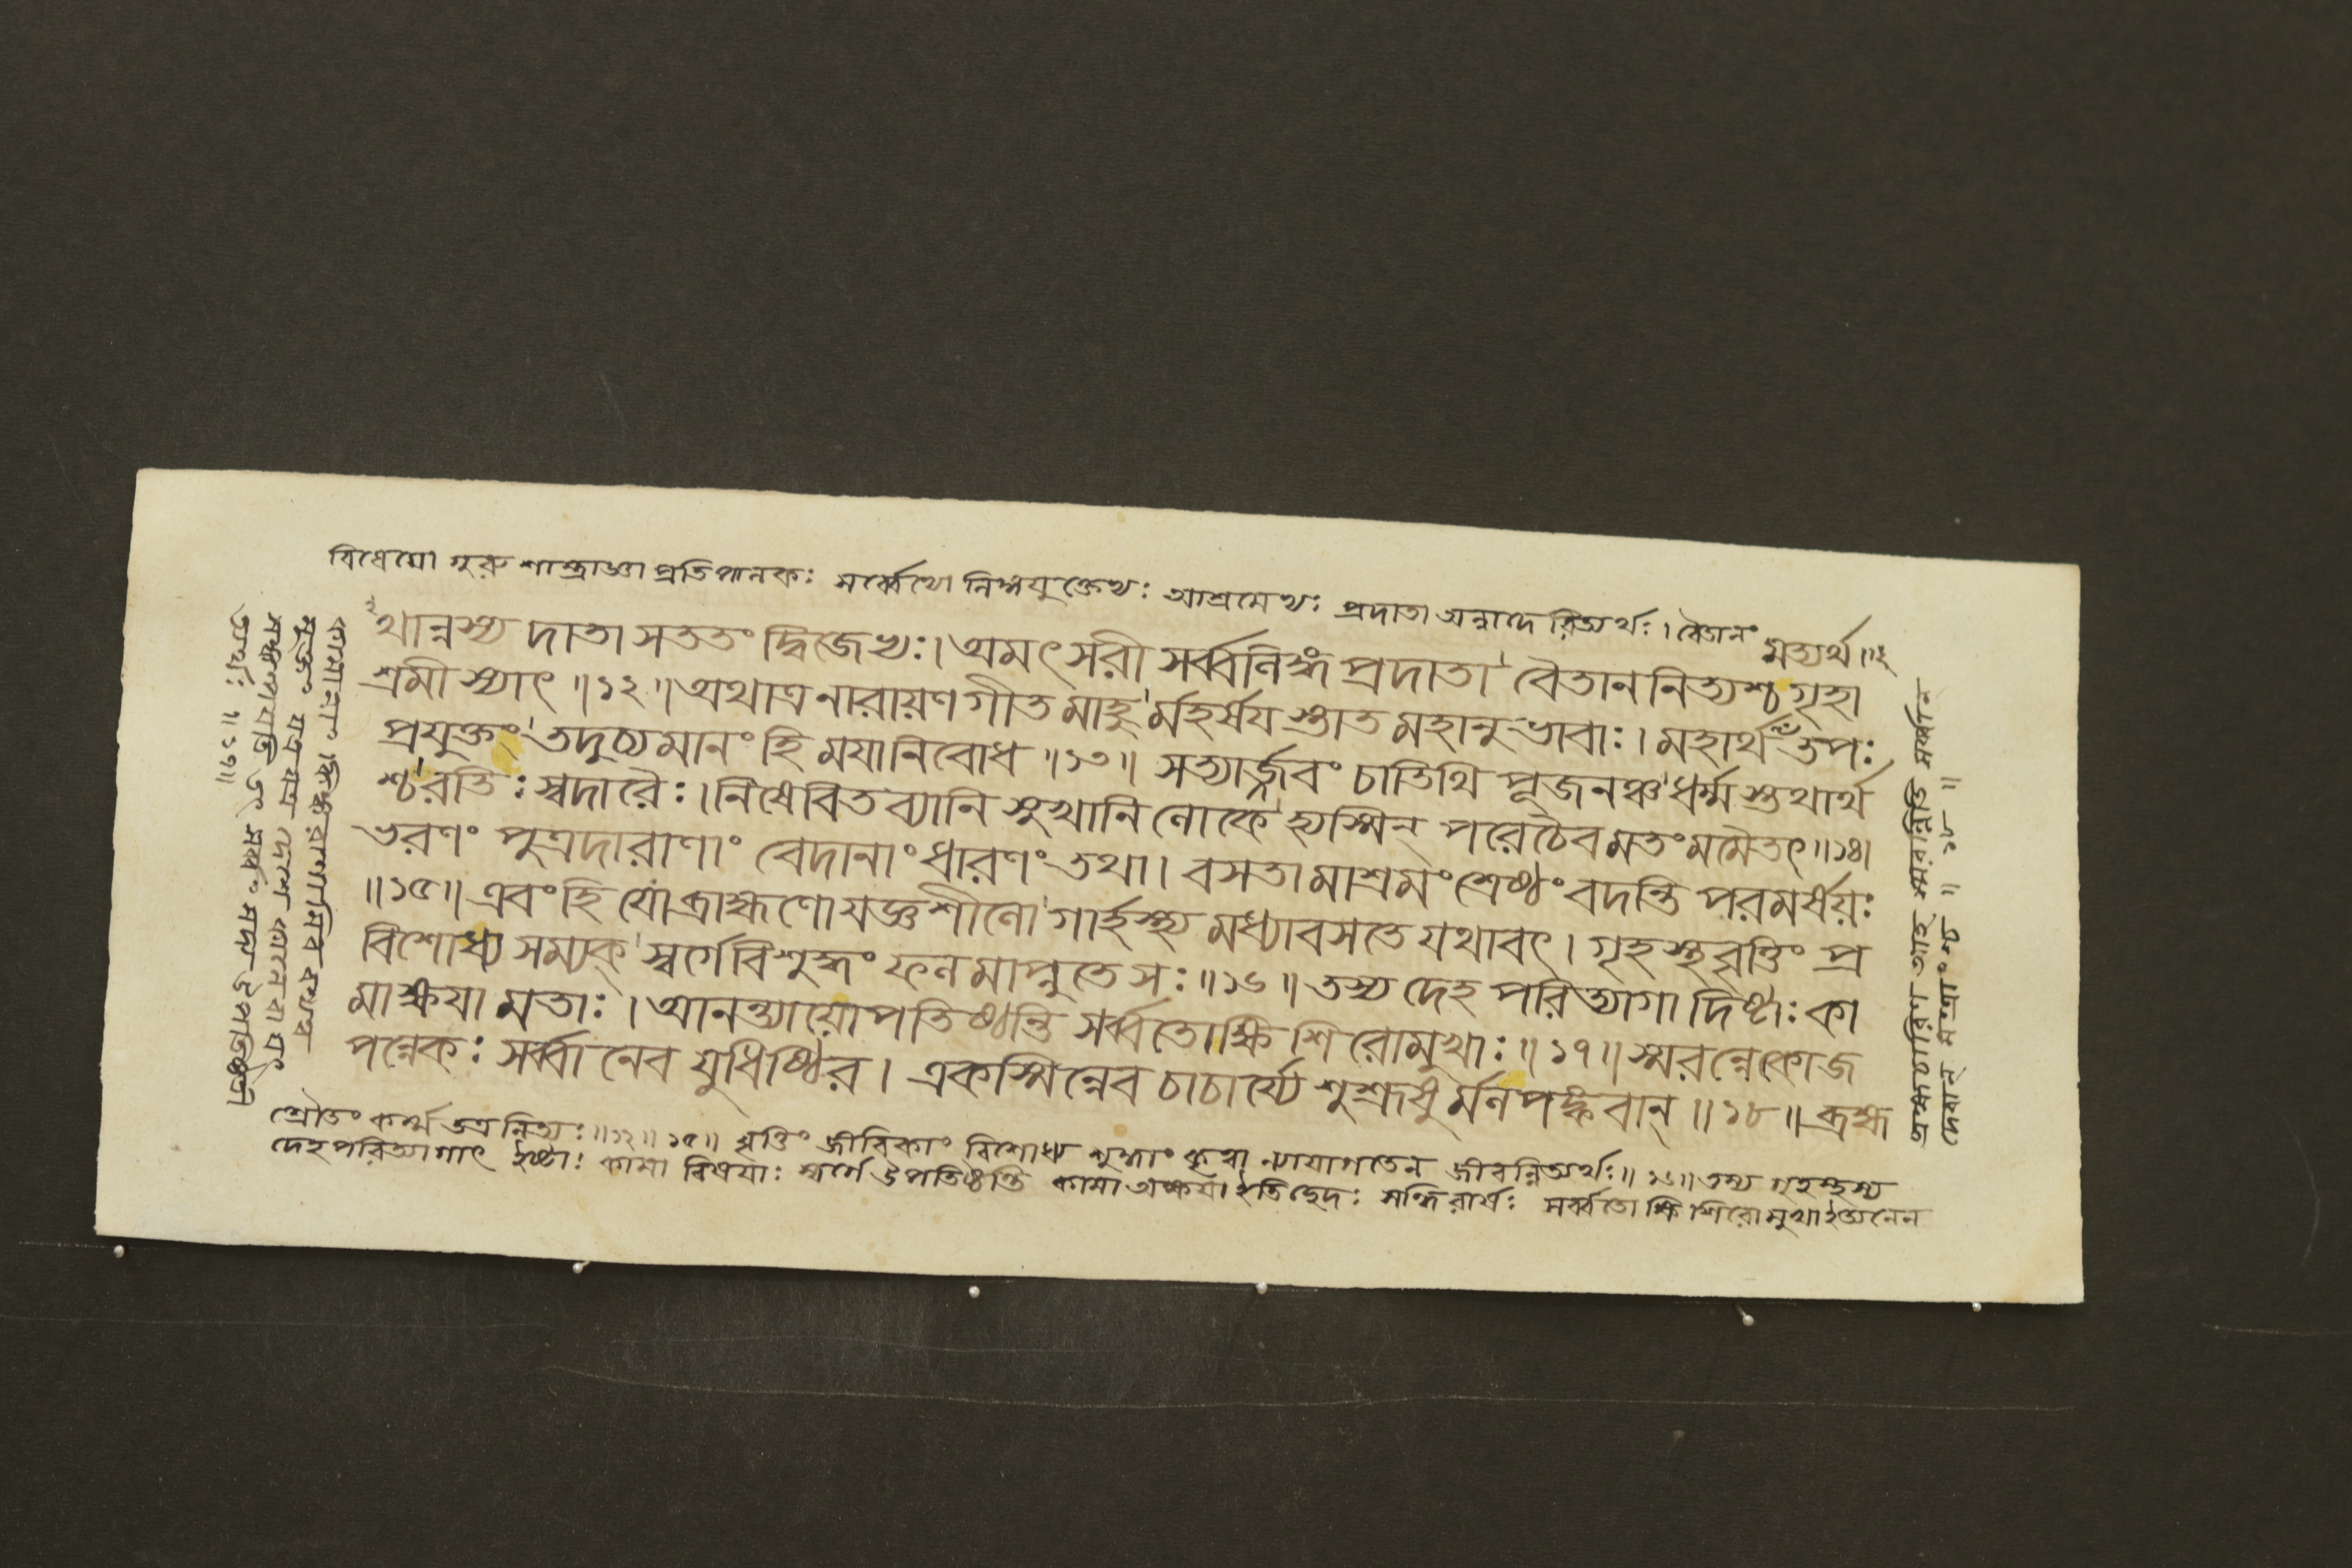 বিধেয়ো গুরুশাস্ত্রাজ্ঞাপ্রতিপালকঃ সর্ব্বেভ্যো লিঙ্গযুক্তেভ্যঃ আশ্রমেভ্যঃ প্রদাতা অন্নাদেরিত্যর্থঃ। বৈতানং
মত্যর্থ॥২
থান্নস্য দাতা সততং দ্বিজেভ্যঃ। অমৎসরী সর্ব্বলিঙ্গপ্রদাতা বৈতাননিত্যশ্চ গৃহা
শ্রমী স্যাৎ॥১২॥ অথাত্র নারায়ণগীতমাহুর্মহর্ষযস্তাত মহানুভাবাঃ। মহার্থ তপঃ
প্রযুক্তং তদুচ্যমানং হি ময়া নিবোধ॥১৩॥ সত্যার্জ্জবং চাতিথিপূজনঞ্চ ধর্ম্মস্তথার্থ
শ্চ রতিঃ স্বদারৈঃ। নিষেবিতব্যানি সুখানি লোকে হ্যস্মিন্ পরে চৈব মতং মমৈতৎ॥১৪॥
ভরণং পুত্রদারাণাং বেদানাং ধারণং তথা। বসতামাশ্রমং শ্রেষ্ঠং বদন্তি পরমর্ষয়ঃ
॥১৫॥ এবং হি যো ব্রাহ্মণো যজ্ঞশীলো গার্হস্থ্যমধ্যাবসতে যথাবৎ। গৃহস্থবৃত্তিং প্র
বিশোধ্য সম্যক্ স্বর্গে বিশুদ্ধং ফলমাপ্নুতে সঃ॥১৬॥ তস্য দেহপরিত্যাগাদিষ্টাঃ কা
মাক্ষয়া মতাঃ। আনন্ত্যায়োপতিষ্ঠন্তি সর্ব্বতোক্ষিশিরোমুখাঃ॥১৭॥ স্মরন্নেকো জ
পন্নেকঃ সর্ব্বানেব যুধিষ্ঠির। একস্মিন্নেব চাচার্য্যে শুশ্রূষুর্মলপঙ্কবান্॥১৮॥ ব্রহ্ম
শ্রৌতং কর্ম্ম তত্র নিত্যঃ॥১২॥১৫॥ বৃত্তিং জীবিকাং বিশোধ্য শুদ্ধাং কৃত্বা ন্যায়াগতেন জীবন্নিত্যর্থঃ॥১৬॥ তস্য গৃহস্থস্য
দেহপরিত্যাগাৎ ইষ্টাঃ কামা বিষয়াঃ স্বর্গে উপতিষ্ঠন্তি কামা অক্ষয়া ইতিচ্ছেদঃ সন্ধিরার্ষঃ সর্ব্বতোক্ষিশিরোমুখা ইত্যনেন
কামানাং কিঙ্করাণামিব
যত্র যত্র দেশে কালে বা যৎ
সঙ্কল্পয়তি তৎ সর্ব্বং সদ্য উপতিষ্ঠতী
ত্যর্থঃ॥১৭॥
ব্রহ্মচারিণ আহ স্মরন্নিতি সর্ব্বান্
॥১৮॥